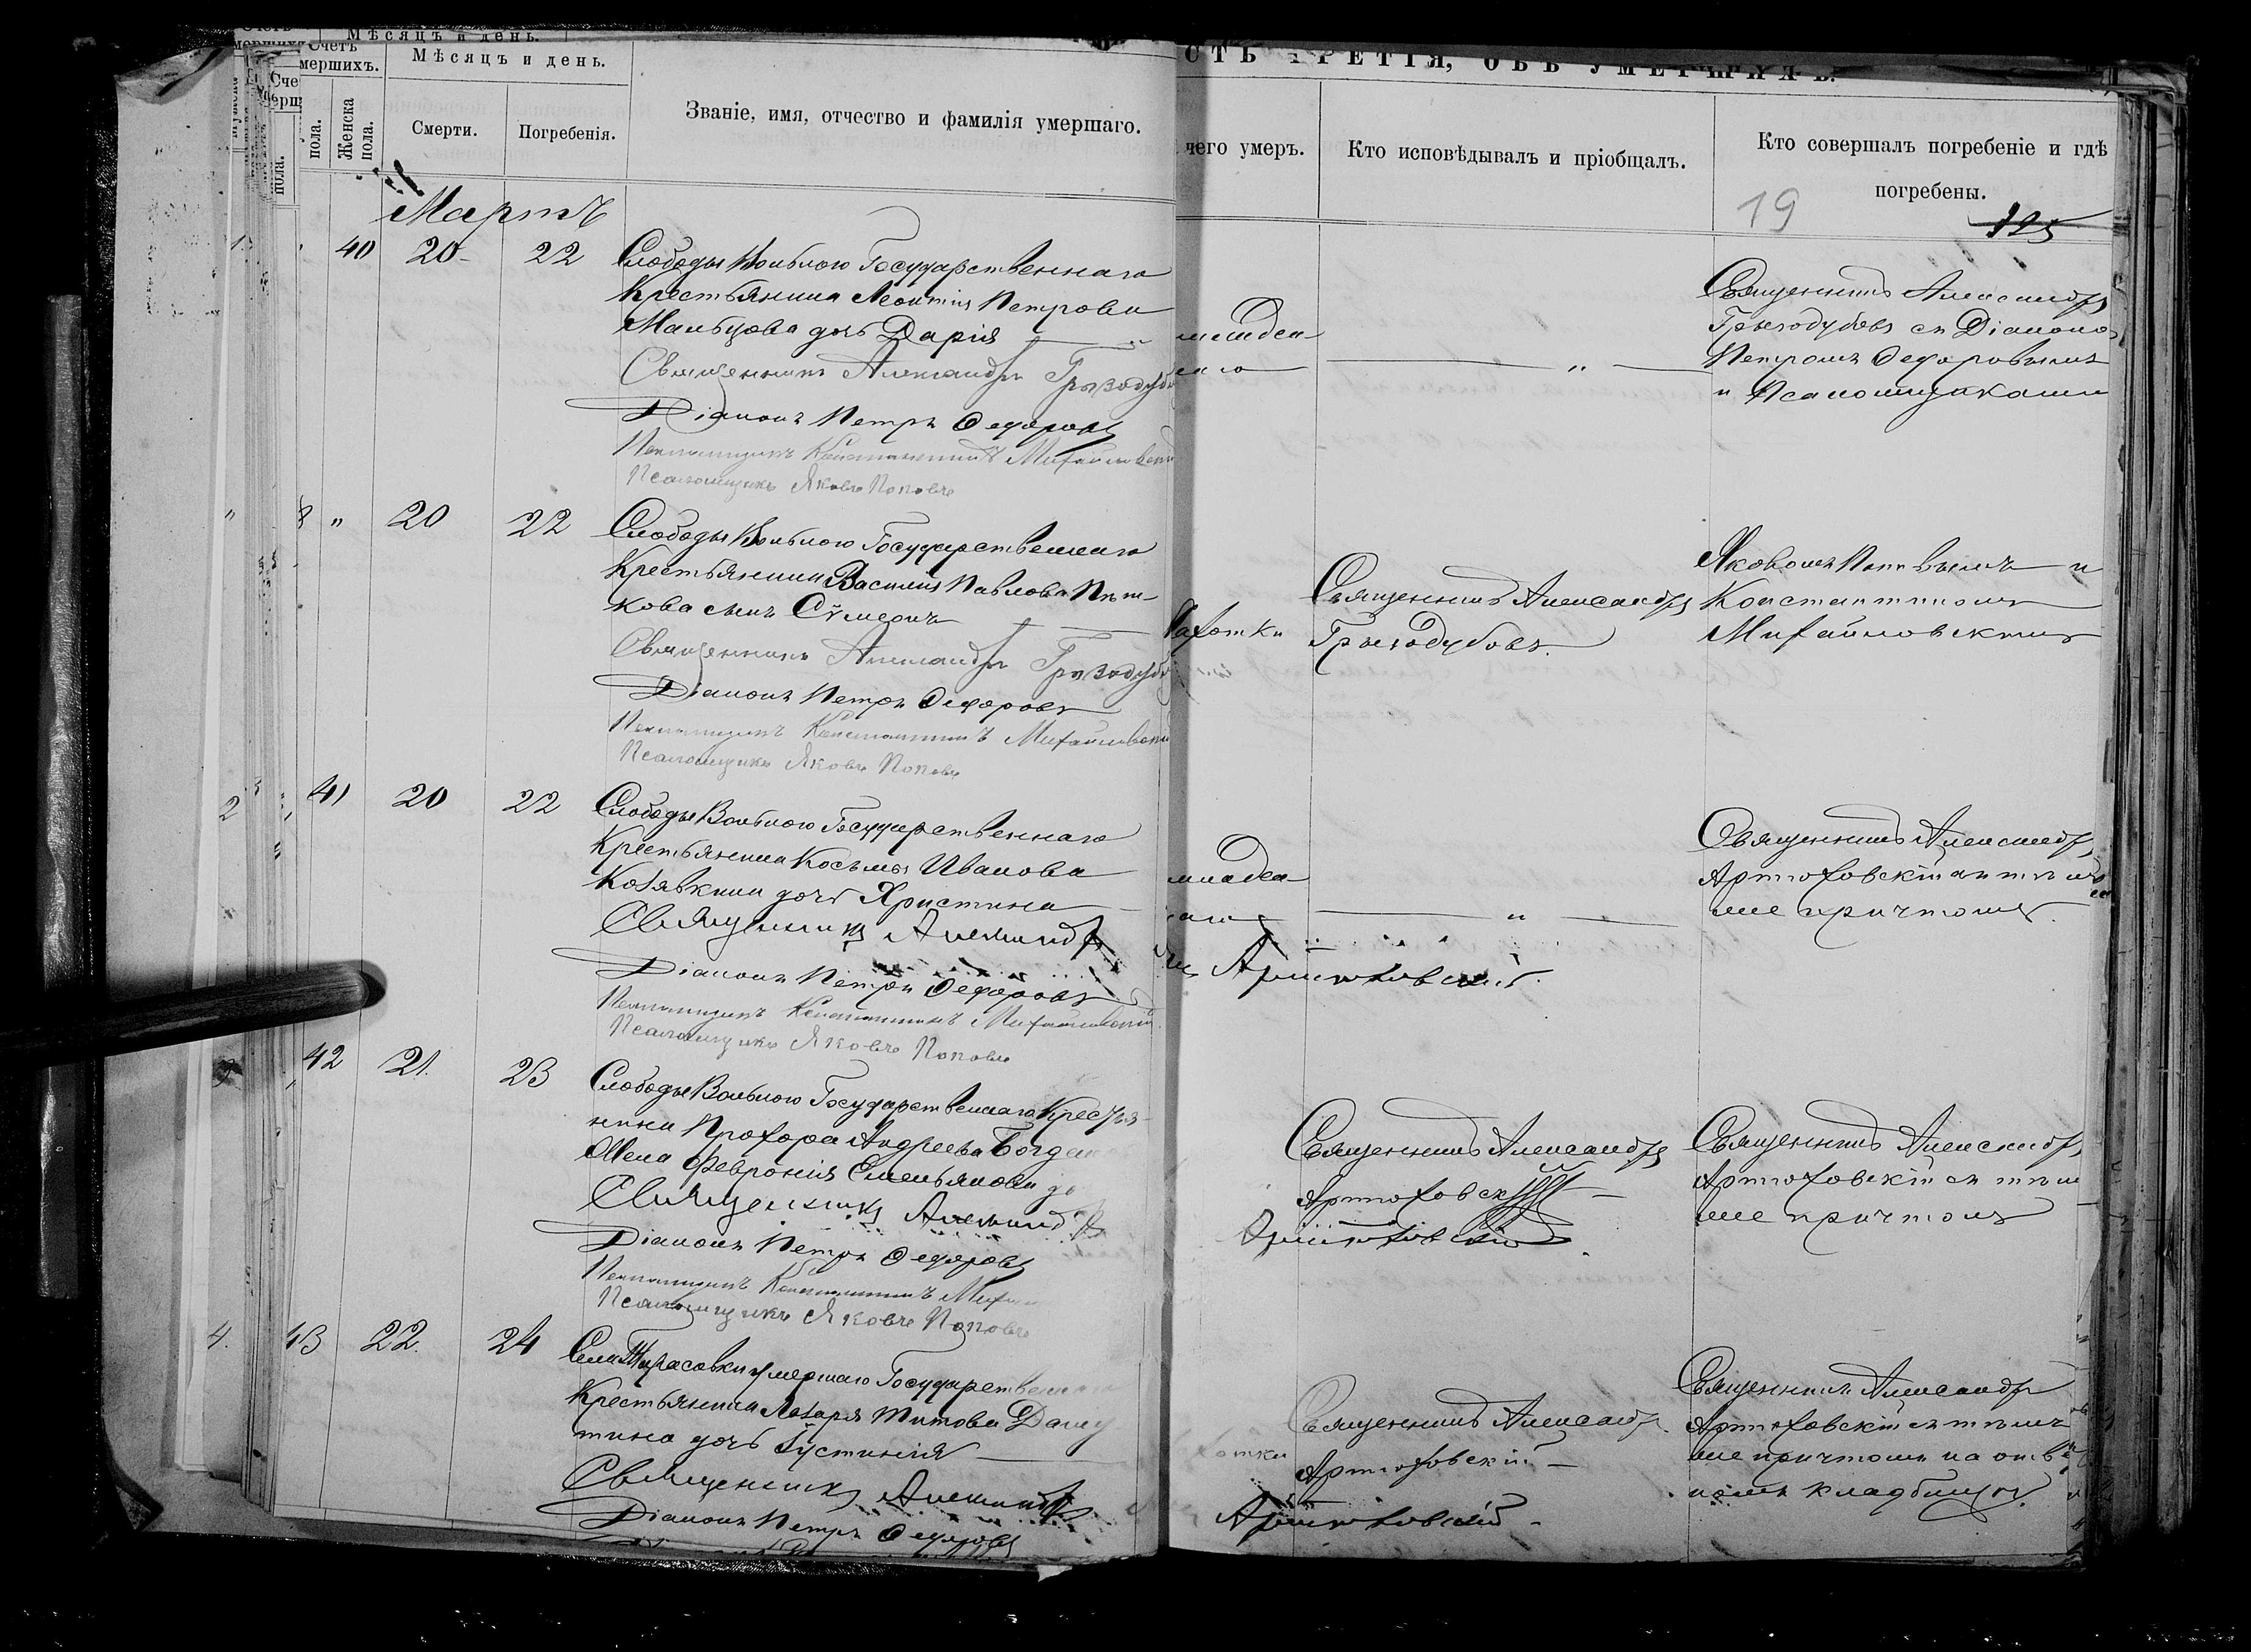 Мѣсяцъ и день.
Счетъ
мершихъ.
Мѣсяцъ и день.
пола.
Женска
пола.
Смерти.
Погребенія.
Званіе, имя, отчество и фамилія умершаго.
Мартъ
40 20 22 Слободы Вольною Государственнаго
Крестьянина Леонтія Петрова
Мальцова дочь Дарія
Священникъ Александръ Грызодубо
Діаконъ Петръ Ѳедоровъ
Псаломщикъ Константинъ Михайловскі
Псаломщикъ Яковъ Поповъ
8 " 20 22 Слободы Вольною Государственнаго
Крестьянина Василія Павлова
кова сынъ Сѵмеонъ
Священникъ Александръ Грызодубо
Діаконъ Петръ Ѳедоровъ
Псаломщикъ Константинъ Михайловскі
Псаломщикъ Яковъ Поповъ
2 41 20 22 Слободы Вольною Государственнаго
Крестьянина Косьмы Иванова
Козявкина дочь Христина
Священникъ Александръ
Діаконъ Петръ Ѳедоровъ
Псаломщикъ Константинъ Михайловскій
Псаломщикъ Яковъ Поповъ
42 21. 23 Слободы Вольною Государственнаго Крестья-
нина Прохора Андреева
жена Февронія Емельянова
Священникъ Александръ
Діаконъ Петръ Ѳедоровъ
Псаломщикъ Константинъ
Псаломщикъ Яковъ Поповъ
4. 43 22. 24 Села Тарасовки умершаго Государственнаго
Крестьянина Лазаря Титова
тина дочь Іустинія
Священникъ Александръ
Діаконъ Петръ Ѳедоровъ
СТЬ ТРЕТІЯ, ОБЪ УМЕРШИХЪ.
чего умеръ.
Кто исповѣдывалъ и пріобщалъ.
Кто совершалъ погребеніе и гдѣ
погребены.
19
125
Священникъ Александръ
Грызодубовъ съ Діакономъ
Петромъ Ѳедоровымъ
и Псаломщиками
чахотки
Священникъ Александръ
Грызодубовъ.
Яковомъ Поповымъ и
Константиномъ
Михайловскимъ
младен
Священникъ Александръ
Артюховскій съ тѣмъ
же причтомъ.
Артюховскій.
Священникъ Александръ
Артюховскій
Артюховскій
Священникъ Александръ
Артюховскій съ тѣмъ
же причтомъ
Священникъ Александръ
Артюховскій
Артюховскій
Священникъ Александръ
Артюховскій съ тѣмъ
же причтомъ на отве
номъ кладбищѣ.